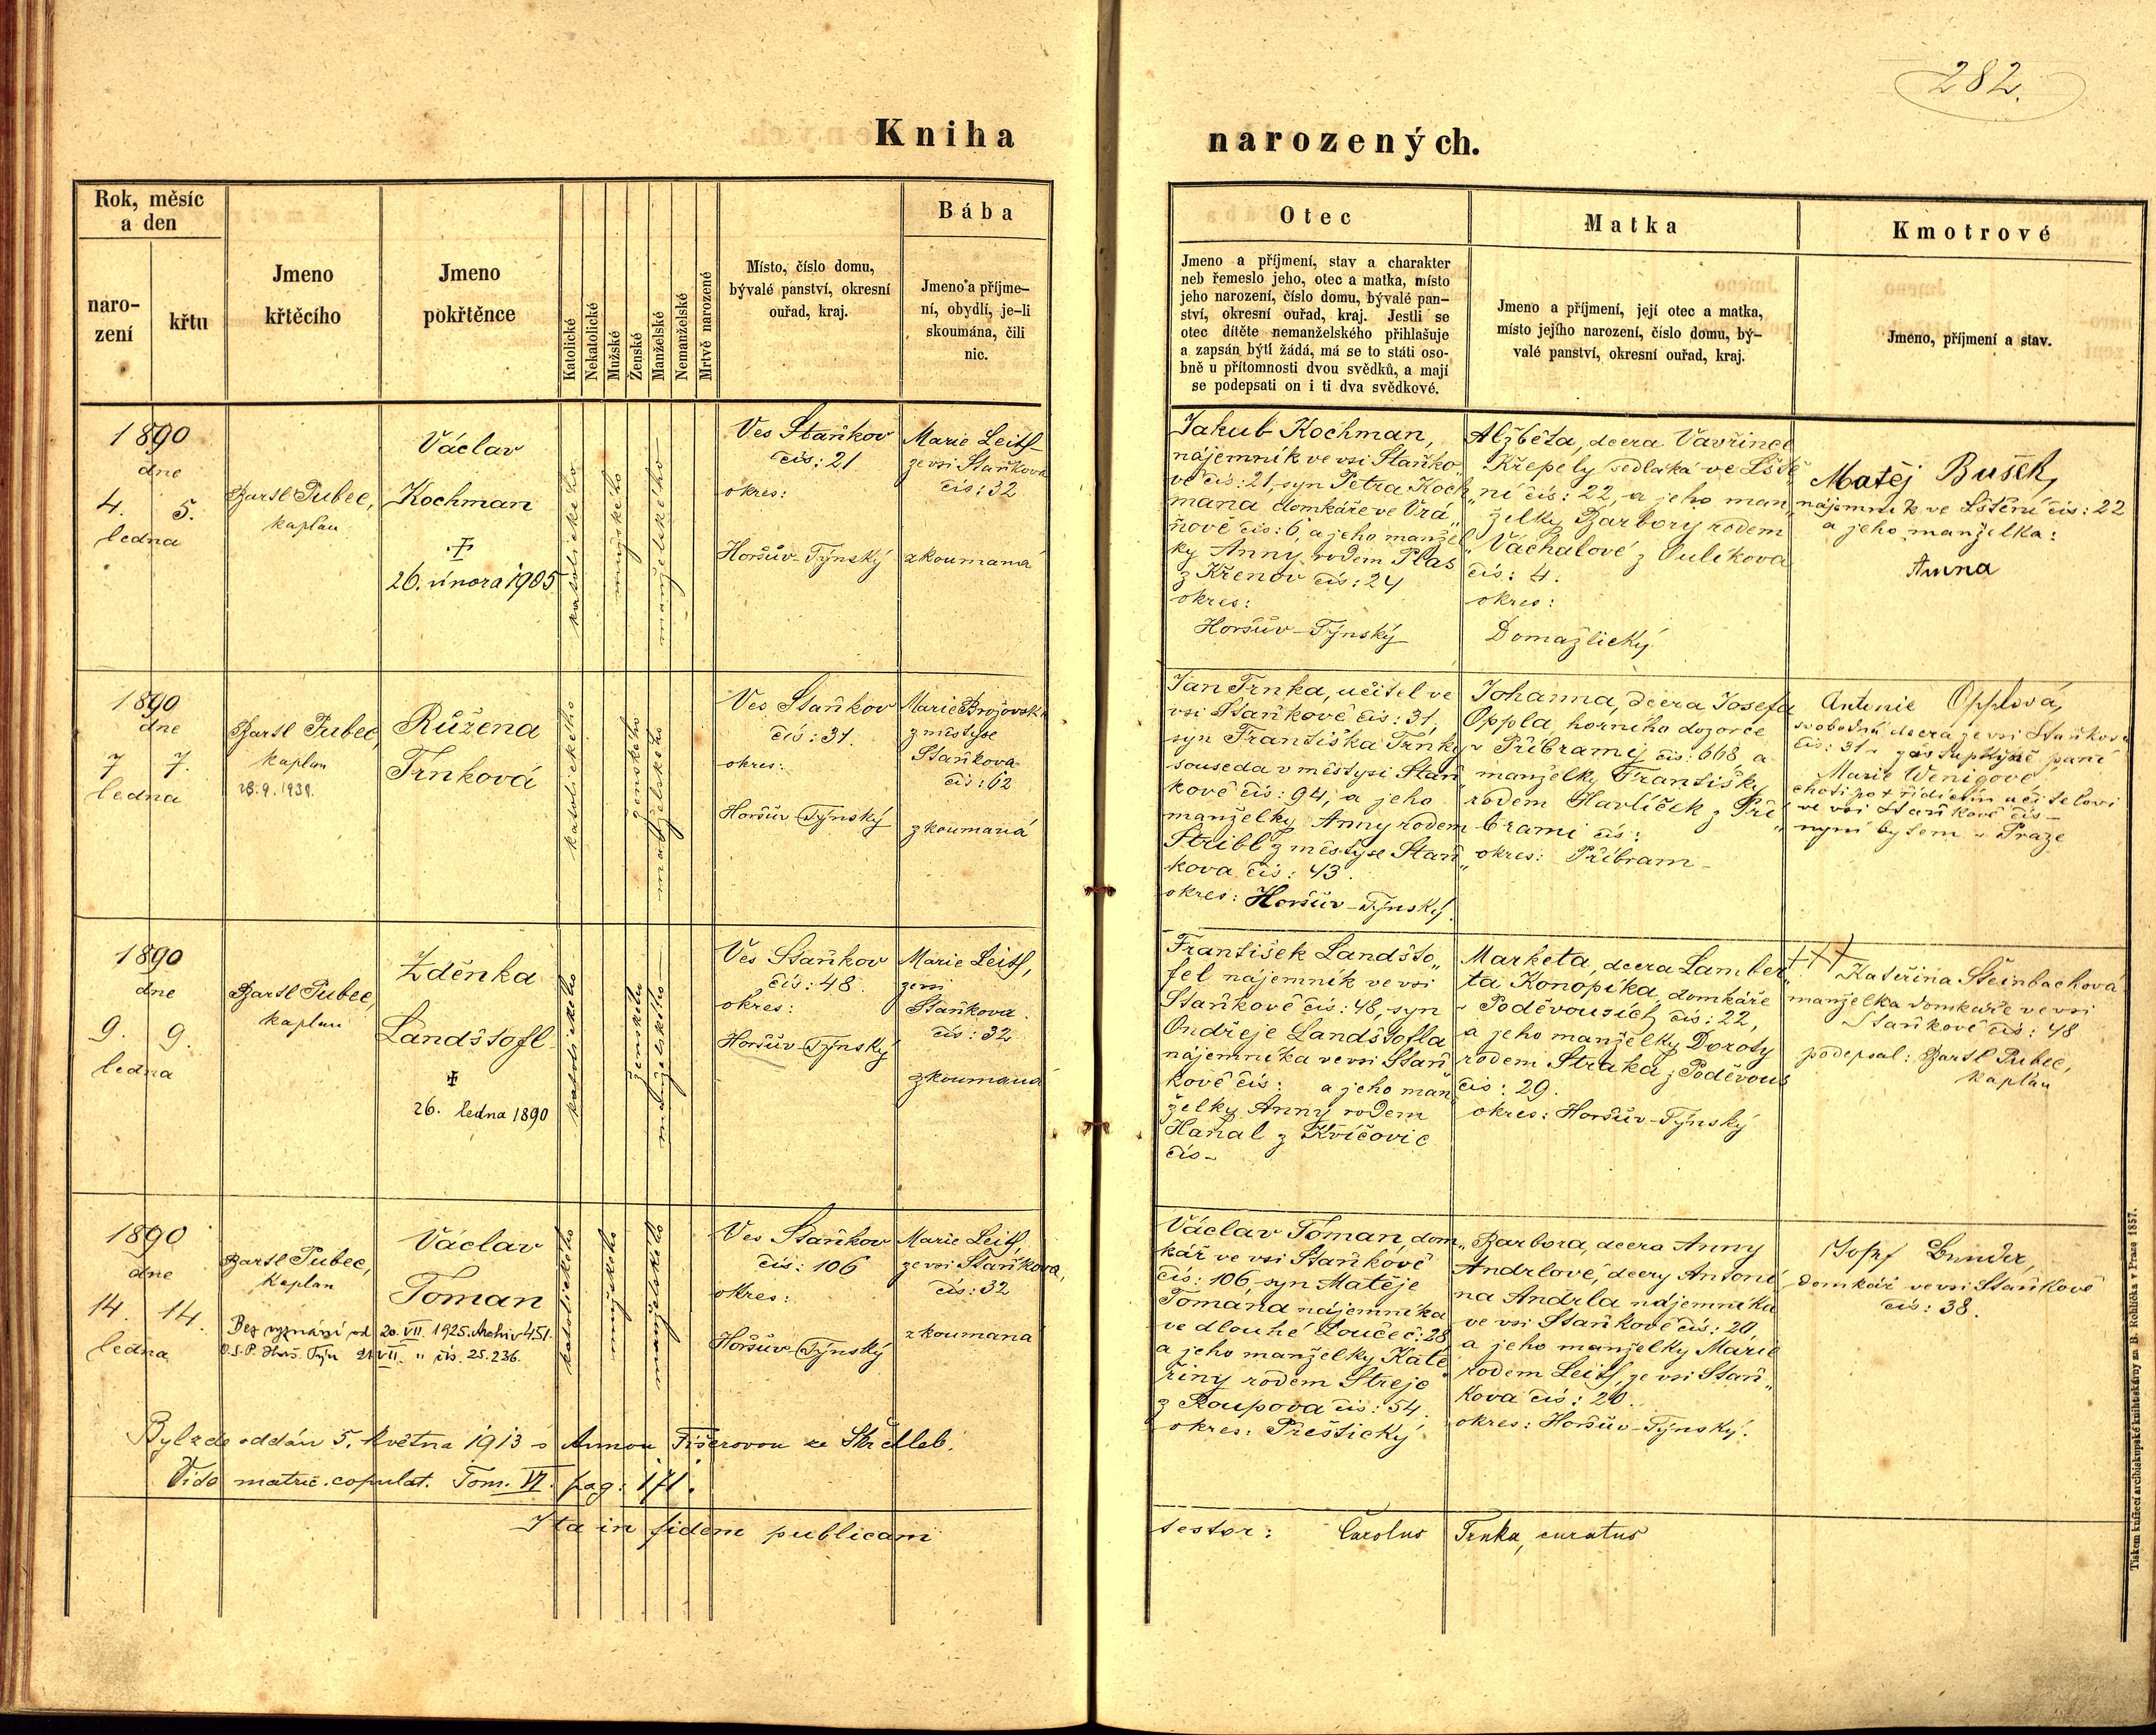 282.
Kniha narozených.
Rok, měsíc
a den
naro-
zení
křtu
Jmeno
křtěcího
Jmeno
pokřtěnce
Katolické
Nekatolické
Mužské
Ženské
Manželské
Nemanželské
Mrtvě narozené
Místo, číslo domu,
bývalé panství, okresní
ouřad, kraj.
Bába
Jmeno a příjme-
ní, obydlí, je-li
skoumána, čili
nic.
Otec
Jmeno a příjmení, stav a charakter
neb řemeslo jeho, otec a matka, místo
jeho narození, číslo domu, bývalé pan-
ství, okresní ouřad, kraj. Jestli se
otec dítěte nemanželského přihlašuje
a zapsán býti žádá, má se to státi oso-
bně u přítomnosti dvou svědků, a mají
se podepsati on i ti dva svědkové.
Matka
Jmeno a příjmení, její otec a matka,
místo jejího narození, číslo domu, bý-
valé panství, okresní ouřad, kraj.
Kmotrové
Jmeno, příjmení a stav.
1890
dne
4. 5.
ledna
Bartl Pubec,
kaplan
Václav
Kochman
26. února 1905
katolického
mužského
manželského
Ves Staňkov
čís: 21
okres:
Horšův-Týnský
Marie Leitl
ze vsi Staňkova
čís: 32
zkoumaná
Jakub Kochman,
nájemník ve vsi Staňko„
vě čís: 21, syn Petra Koch„
mana domkáře ve Vrá„
nově čís: 6, a jeho manžel„
ky Anny rodem Plas
z Křenov čís: 24
okres:
Horšův-Týnský
Alžběta, dcera Vavřince
Křepely sedláka ve Lště„
ní čís: 22, a jeho man„
želky Barbory rodem
Váchalové z Pulíkova
čís: 4.
okres:
Domažlický
Matěj Bušek,
nájemník ve Lštění čís: 22
a jeho manželka:
Anna
1890
dne
7 7.
ledna
Bartl Pubec,
kaplan
Růžena
Trnková
katolického
ženského
manželského
Ves Staňkov
čís: 31.
okres:
Horšův-Týnský
Marie Brojovská
z městyse
Staňkova
čís: 62
zkoumaná
Jan Trnka, učitel ve
vsi Staňkově čís: 31,
syn Františka Trnky
souseda v městysi Staň„
kově čís: 94, a jeho
manželky Anny rodem
Stribl z městyse Staň„
kova čís: 43.
okres: Horšův-Týnský.
Johanna, dcera Josefa
Oppla, horního dozorce
v Příbrami, čís: 668, a
manželky Františky
rodem Havlíček z Pří„
brami čís:
okres: Příbram-
Antonie Opplová,
svobodná dcera ze vsi Staňkova
čís: 31 zástupkyně paní
Marie Wenigové,
choti po † řídícím učitelovi
ve vsi Staňkově čís-
nyní bytem v Praze
1890
dne
9. 9.
ledna
Bartl Pubec,
kaplan
Zděnka
Landštofl
26. ledna 1890
katolického
ženského
manželského
Ves Staňkov
čís: 48.
okres:
Horšův-Týnský
Marie Leitl,
ze vsi
Staňkova.
čís: 32
zkoumaná
František Landšto„
fel nájemník ve vsi
Staňkově čís: 48, syn
Ondřeje Landštofla
nájemníka ve vsi Staň„
kově čís: a jeho man„
želky Anny rodem
Haňal z Kvíčovic
čís-
Marketa, dcera Lamber„
ta Konopíka, domkáře
v Poděvousích, čís: 22,
a jeho manželky Doroty
rodem Straka z Poděvous
čís: 29.
okres: Horšův-Týnský
+++
Kateřina Steinbachová
manželka domkáře ve vsi
Staňkově čís: 48
podepsal: Bartl Pubec,
kaplan
1890
dne
14. 14.
ledna
Bartl Pubec,
kaplan
Bez vyznání od 20. VII. 1925. Archiv 451.
O.S.P. Horš. Týn 21 VII. " čís. 25.236.
Václav
Toman
katolického
mužského
manželského
Ves Staňkov
čís: 106
okres:
Horšův-Týnský
Marie Leitl,
ze vsi Staňkova,
čís: 32
zkoumaná
Václav Toman, dom„
kář ve vsi Staňkově
čís: 106, syn Matěje
Tomana nájemníka
ve dlouhé Loučce č: 28,
a jeho manželky Kate„
řiny rodem Strejc
z Roupova čís: 54.
okres: Přeštický
Barbora, dcera Anny
Andrlové, dcery Antoní„
na Andrla nájemníka
ve vsi Staňkově čís: 20
a jeho manželky Marie
rodem Leitl, ze vsi Staň„
kova čís: 20.
okres: Horšův-Týnský.
Josef
domkář ve vsi Staňkově
čís: 38.
Byl zde oddán 5. května 1913 s Annou Fišerovou ze
Vide matric. copulat. Tom. VI. pag: 171.
Ita in fidem publicam testor: Carolus Trnka, curatus
Tiskem knížecí arcibiskupské knihtiskárny za B. Rohlíčka v Praze 1857.